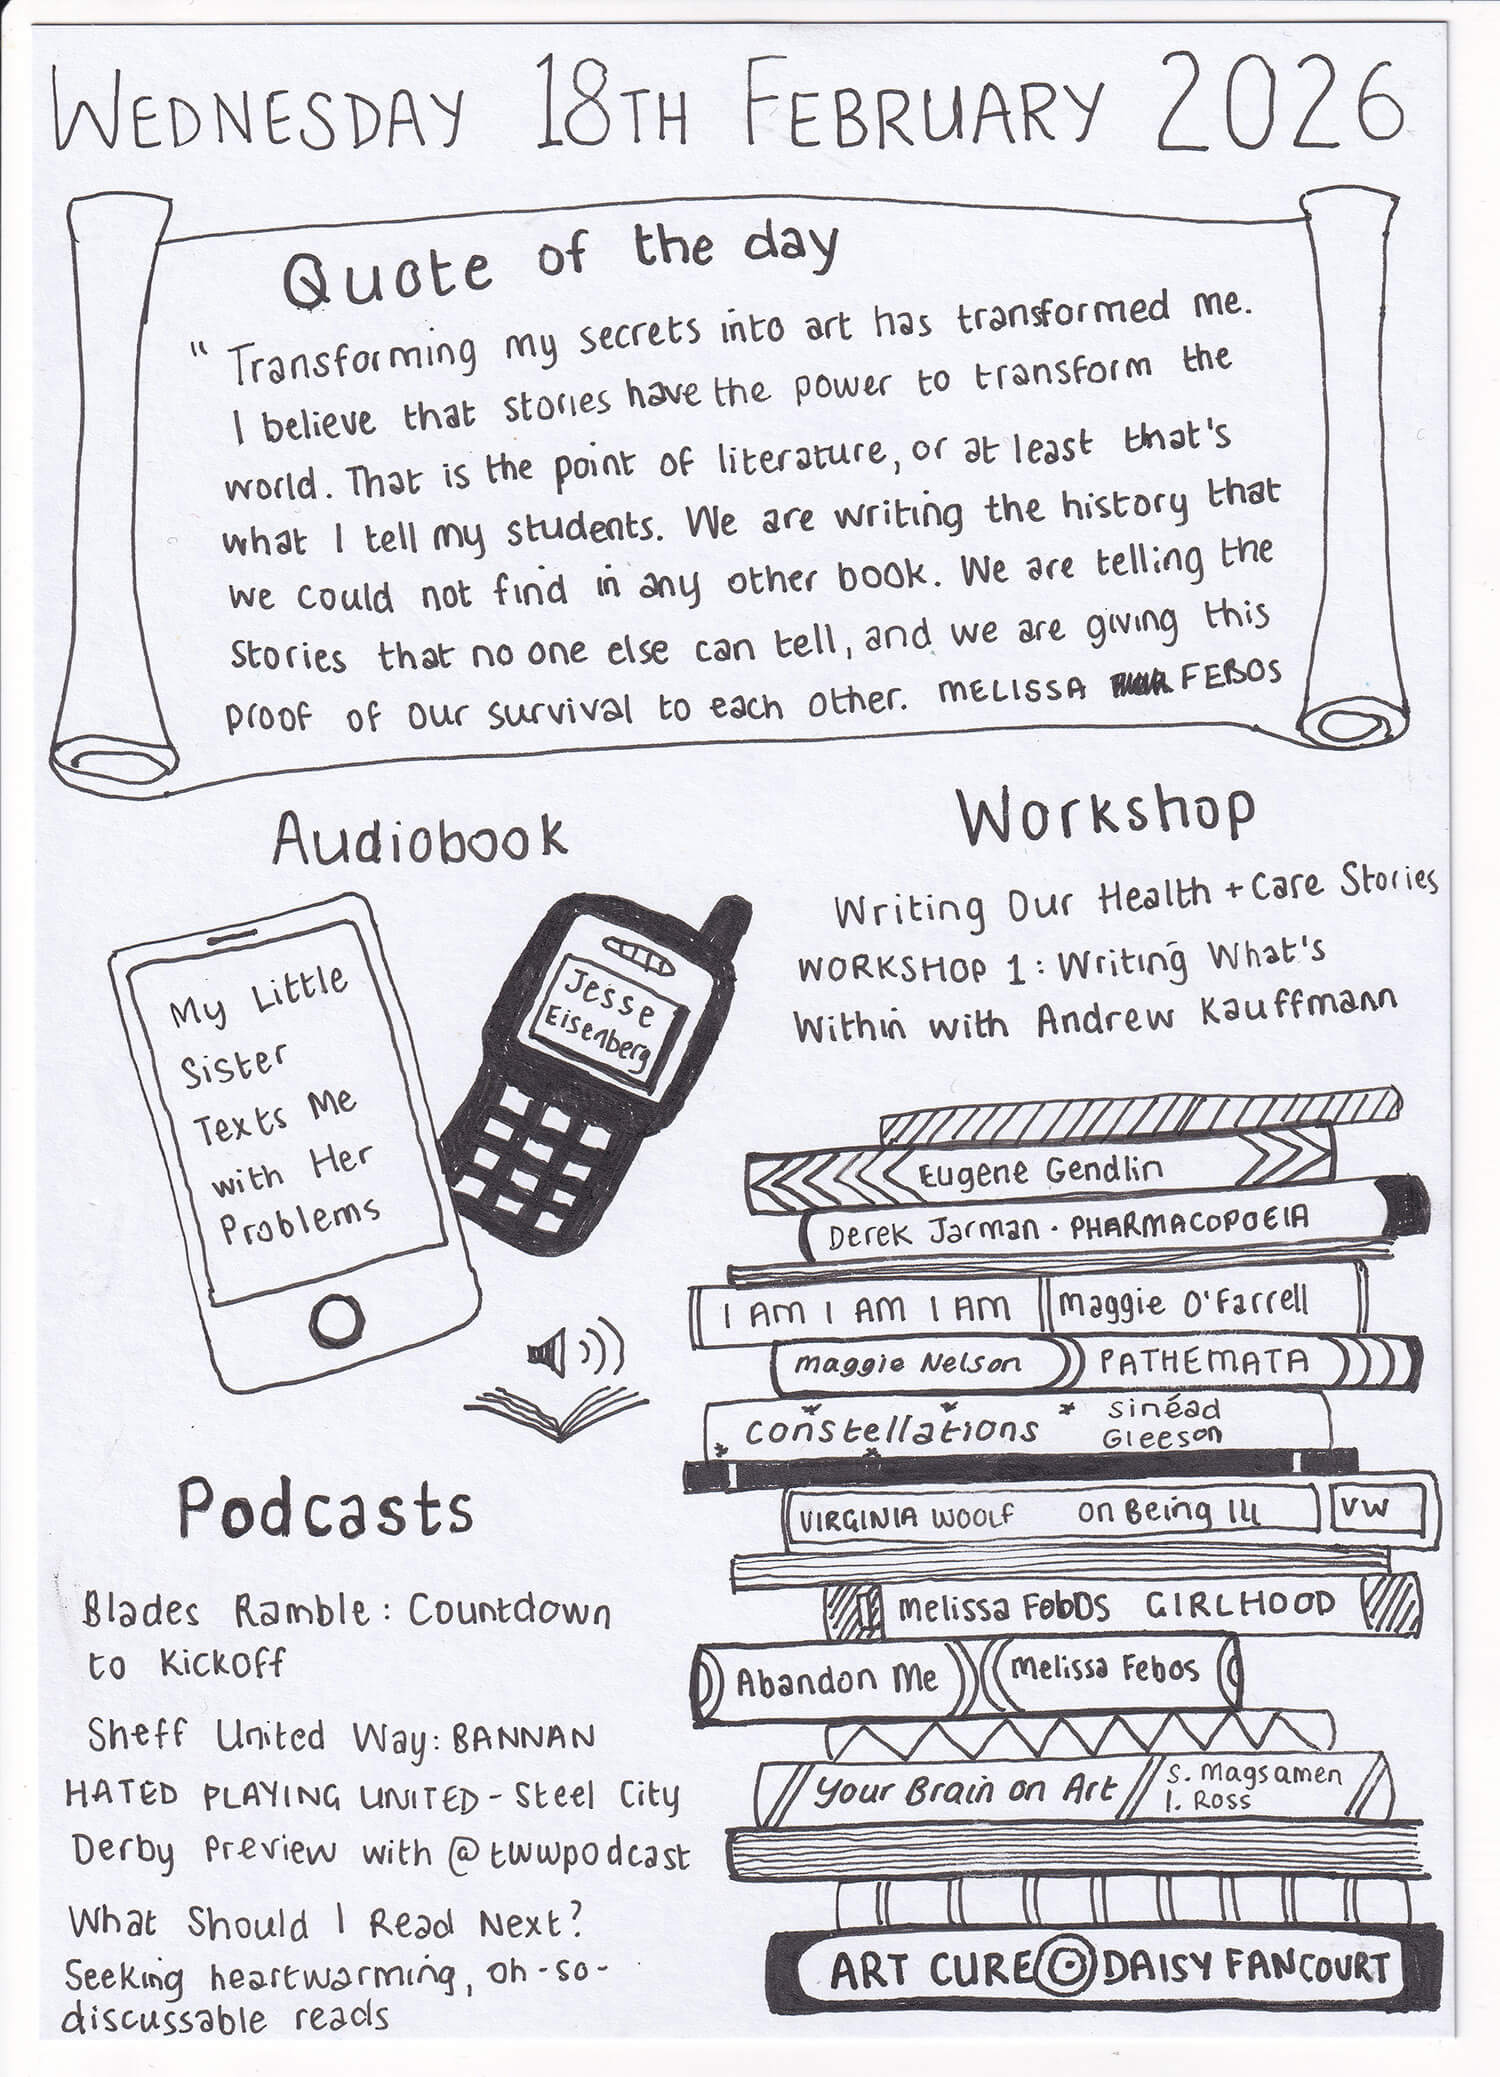 WEDNESDAY 18TH FEBRUARY 2026
Quote of the day
" Transforming my secrets into art has transformed me.
I believe that stories have the power to transform the
world. That is the point of literature, or at least that's
what I tell my students. We are writing the history that
we could not find in any other book. We are telling the
stories that no one else can tell, and we are giving this
proof of our survival to each other. MELISSA FEBOS
Audiobook
My Little
Sister
Texts Me
with Her
Problems
Jesse
Eisenberg
Workshop
Writing Our Health + Care Stories
WORKSHOP 1: Writing What's
Within with Andrew Kauffmann
Eugene Gendlin
Derek Jarman · PHARMACOPOEIA
I AM I AM I AM Maggie O'Farrell
Maggie Nelson PATHEMATA
Constellations * Sinéad
Gleeson
VIRGINIA WOOLF On Being Ill VW
Melissa Febos GIRLHOOD
Abandon Me Melissa Febos
Your Brain on Art S. Magsamen
I. Ross
ART CURE DAISY FANCOURT
Podcasts
Blades Ramble: Countdown
to Kickoff
Sheff United Way: BANNAN
HATED PLAYING UNITED - Steel City
Derby Preview with @twwpodcast
What Should I Read Next?
Seeking heartwarming, oh-so-
discussable reads